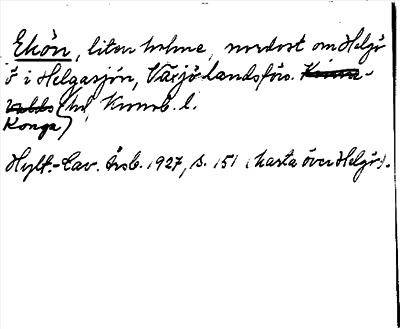 Ekön, liten holme, nordost om Helgö
ö i Helgasjön, Växjö landsförs. Kinne-
valds hd, Kronob. l.
Konga
Hylt.-Cav. Årsb. 1927, s. 151 (karta över Helgö).